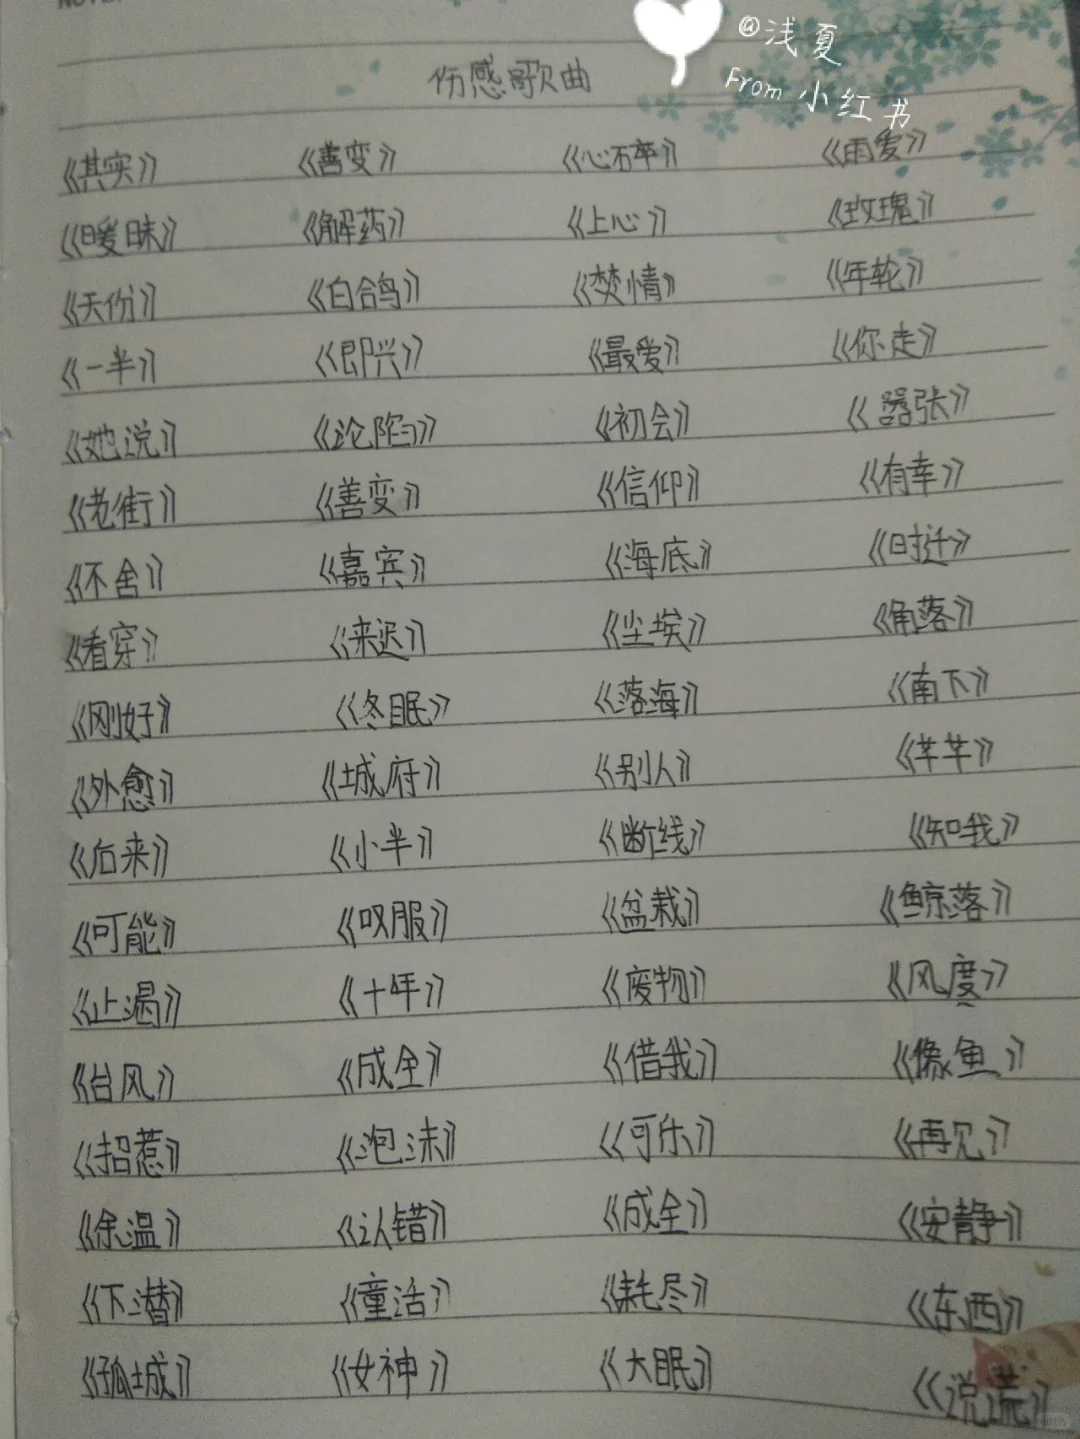 @浅夏
From 小红书
伤感歌曲
《其实》 《善变》 《心碎》 《雨爱》
《暧昧》 《解药》 《上心》 《玫瑰》
《天份》 《白鸽》 《焚情》 《年轮》
《一半》 《即兴》 《最爱》 《你走》
《她说》 《沦陷》 《初会》 《嚣张》
《老街》 《善变》 《信仰》 《有幸》
《不舍》 《嘉宾》 《海底》 《时迁》
《看穿》 《来迟》 《尘埃》 《角落》
《刚好》 《冬眠》 《落海》 《南下》
《外愈》 《城府》 《别人》 《芊芊》
《后来》 《小半》 《断线》 《知我》
《可能》 《叹服》 《盆栽》 《鲸落》
《止渴》 《十年》 《废物》 《风度》
《台风》 《成全》 《借我》 《像鱼》
《招惹》 《泡沫》 《可乐》 《再见》
《余温》 《认错》 《成全》 《安静》
《下潜》 《童话》 《耗尽》 《东西》
《孤城》 《女神》 《大眠》 《说谎》